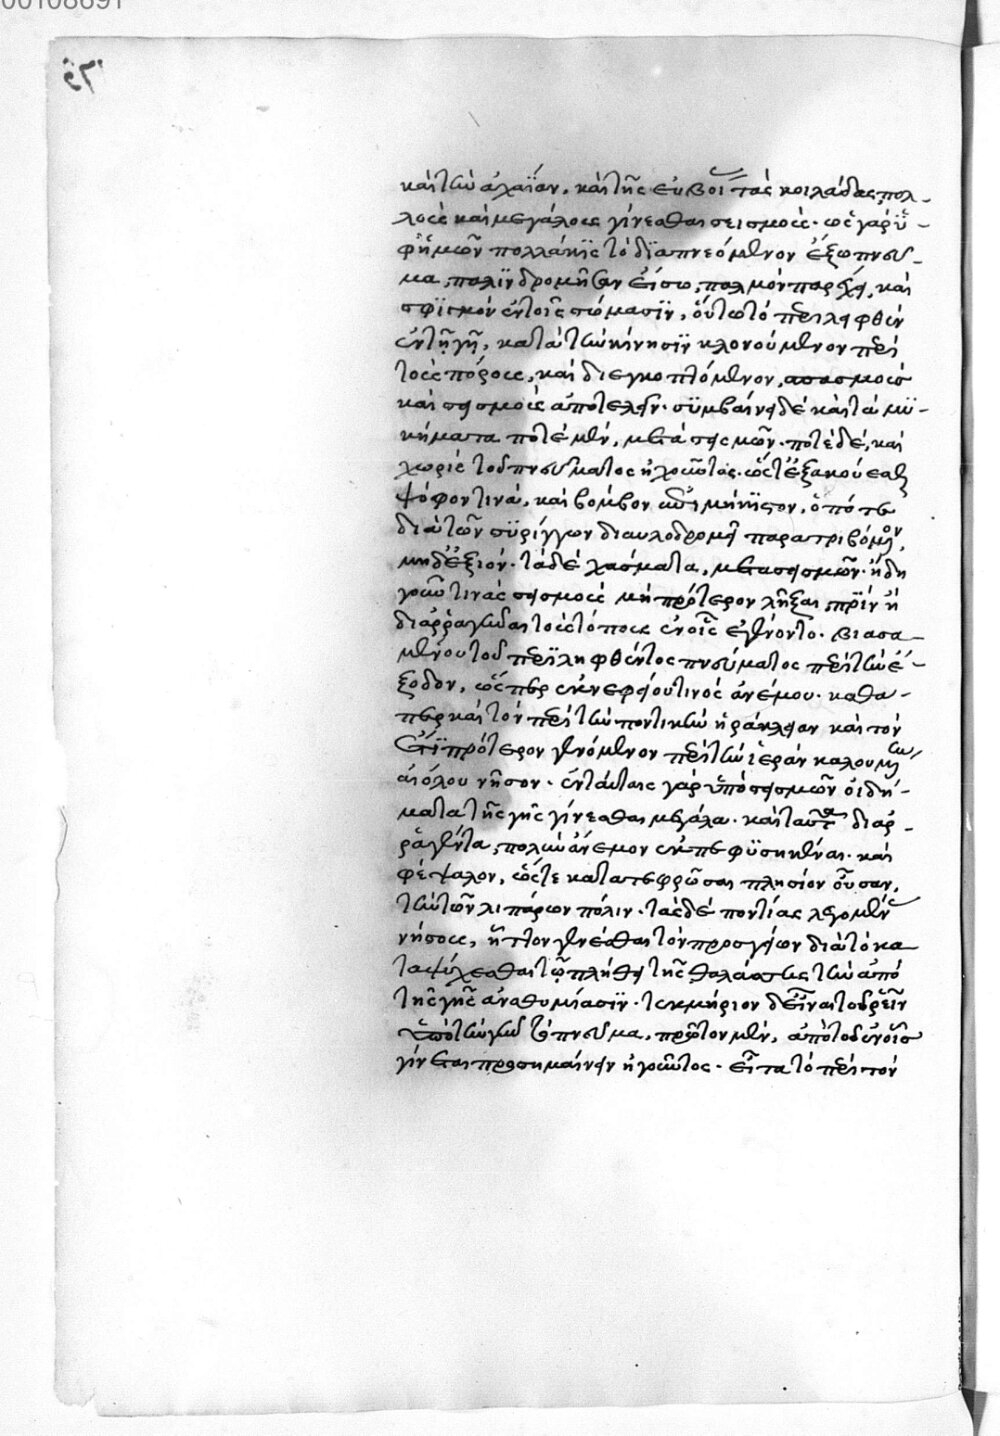 00108691
καὶ τὴν ἀχαΐαν, καὶ τῆς εὐβοίας τὰς κοιλάδας, πολ-
λοὺς καὶ μεγάλους γίνεσθαι σεισμούς. ὡς γὰρ ὑ-
φ' ἡμῶν πολλάκις τὸ διαπνεόμενον ἔξω πνεῦ-
μα, παλινδρομῆσαν εἴσω, παλμὸν παρέχει, καὶ
σφϊγμὸν ἐν τοῖς σώμασϊν, οὕτω τὸ περιληφθὲν
ἐν τῇ γῇ, κατὰ τὴν κίνησϊν κλονούμενον περὶ
τοὺς πόρους, καὶ διεγκοπτόμενον,
καὶ σεισμοὺς ἀποτελεῖν. συμβαίνει δὲ καὶ τὰ μυ-
κήματα ποτὲ μὲν, μετὰ σεισμῶν. ποτὲ δὲ, καὶ
χωρὶς τοῦ πνεύματος ἠχοῦντος. ὥστ' ἐξακούεσθαι
ψόφον τινὰ, καὶ βόμβον ἀεὶ μήνϋτον, ὁπότε
διὰ τῶν συρίγγων διαυλοδρομεῖ παρατριβόμενον,
μηδ' ἔξϊόν. τὰ δὲ χάσματα, μετὰ σεισμῶν. ἤδη
γοῦν τινὰς σεισμοὺς μὴ πρότερον λῆξαι, πρϊν ἢ
διαρραγῆναι τοὺς τόπους ἐν οἷς ἐγένοντο. βιασα-
μένου τοῦ περϊληφθέντος πνεύματος περὶ τὴν ἔ-
ξοδον, ὥσπερ ἐκνεφίου τινὸς ἀνέμου. καθά-
περ καὶ τὸν περὶ τὴν ποντικὴν ἡράκλειαν καὶ τὸν
ἔτϊ πρότερον γενόμενον περὶ τὴν ἱερὰν καλουμένην
αἰόλου νῆσον. ἐν ταύταις γὰρ ὑπὸ σεισμῶν οἰδή-
ματα τῆς γῆς γίνεσθαι μεγάλα. καὶ ταῦτα διαρ-
ραγέντα, πολὺν ἄνεμον ἐκπεφϋσηκέναι. καὶ
φέψαλον, ὥστε κατατεφρῶσαι πλησίον οὖσαν,
τὴν τῶν λιπάρων πόλιν. τὰς δὲ ποντίας λεγομένας
νήσους, ἧττον γενέσθαι τὸν προσγείων διὰ τὸ κα
ταψύχεσθαι τῷ πλήθει τῆς θαλάσσης τὴν ἀπὸ
τῆς γῆς ἀναθυμίασϊν. τεκμήριον δ' εἶναι τοῦ ῥεῖν
ὑπὸ τὴν γῆν τὸ πνεῦμα, πρῶτον μὲν, ἀπὸ τοῦ ἐν οἷς
γίνεται προσημαίνειν ἠχοῦντος. εἶτα τὸ περὶ τὸν